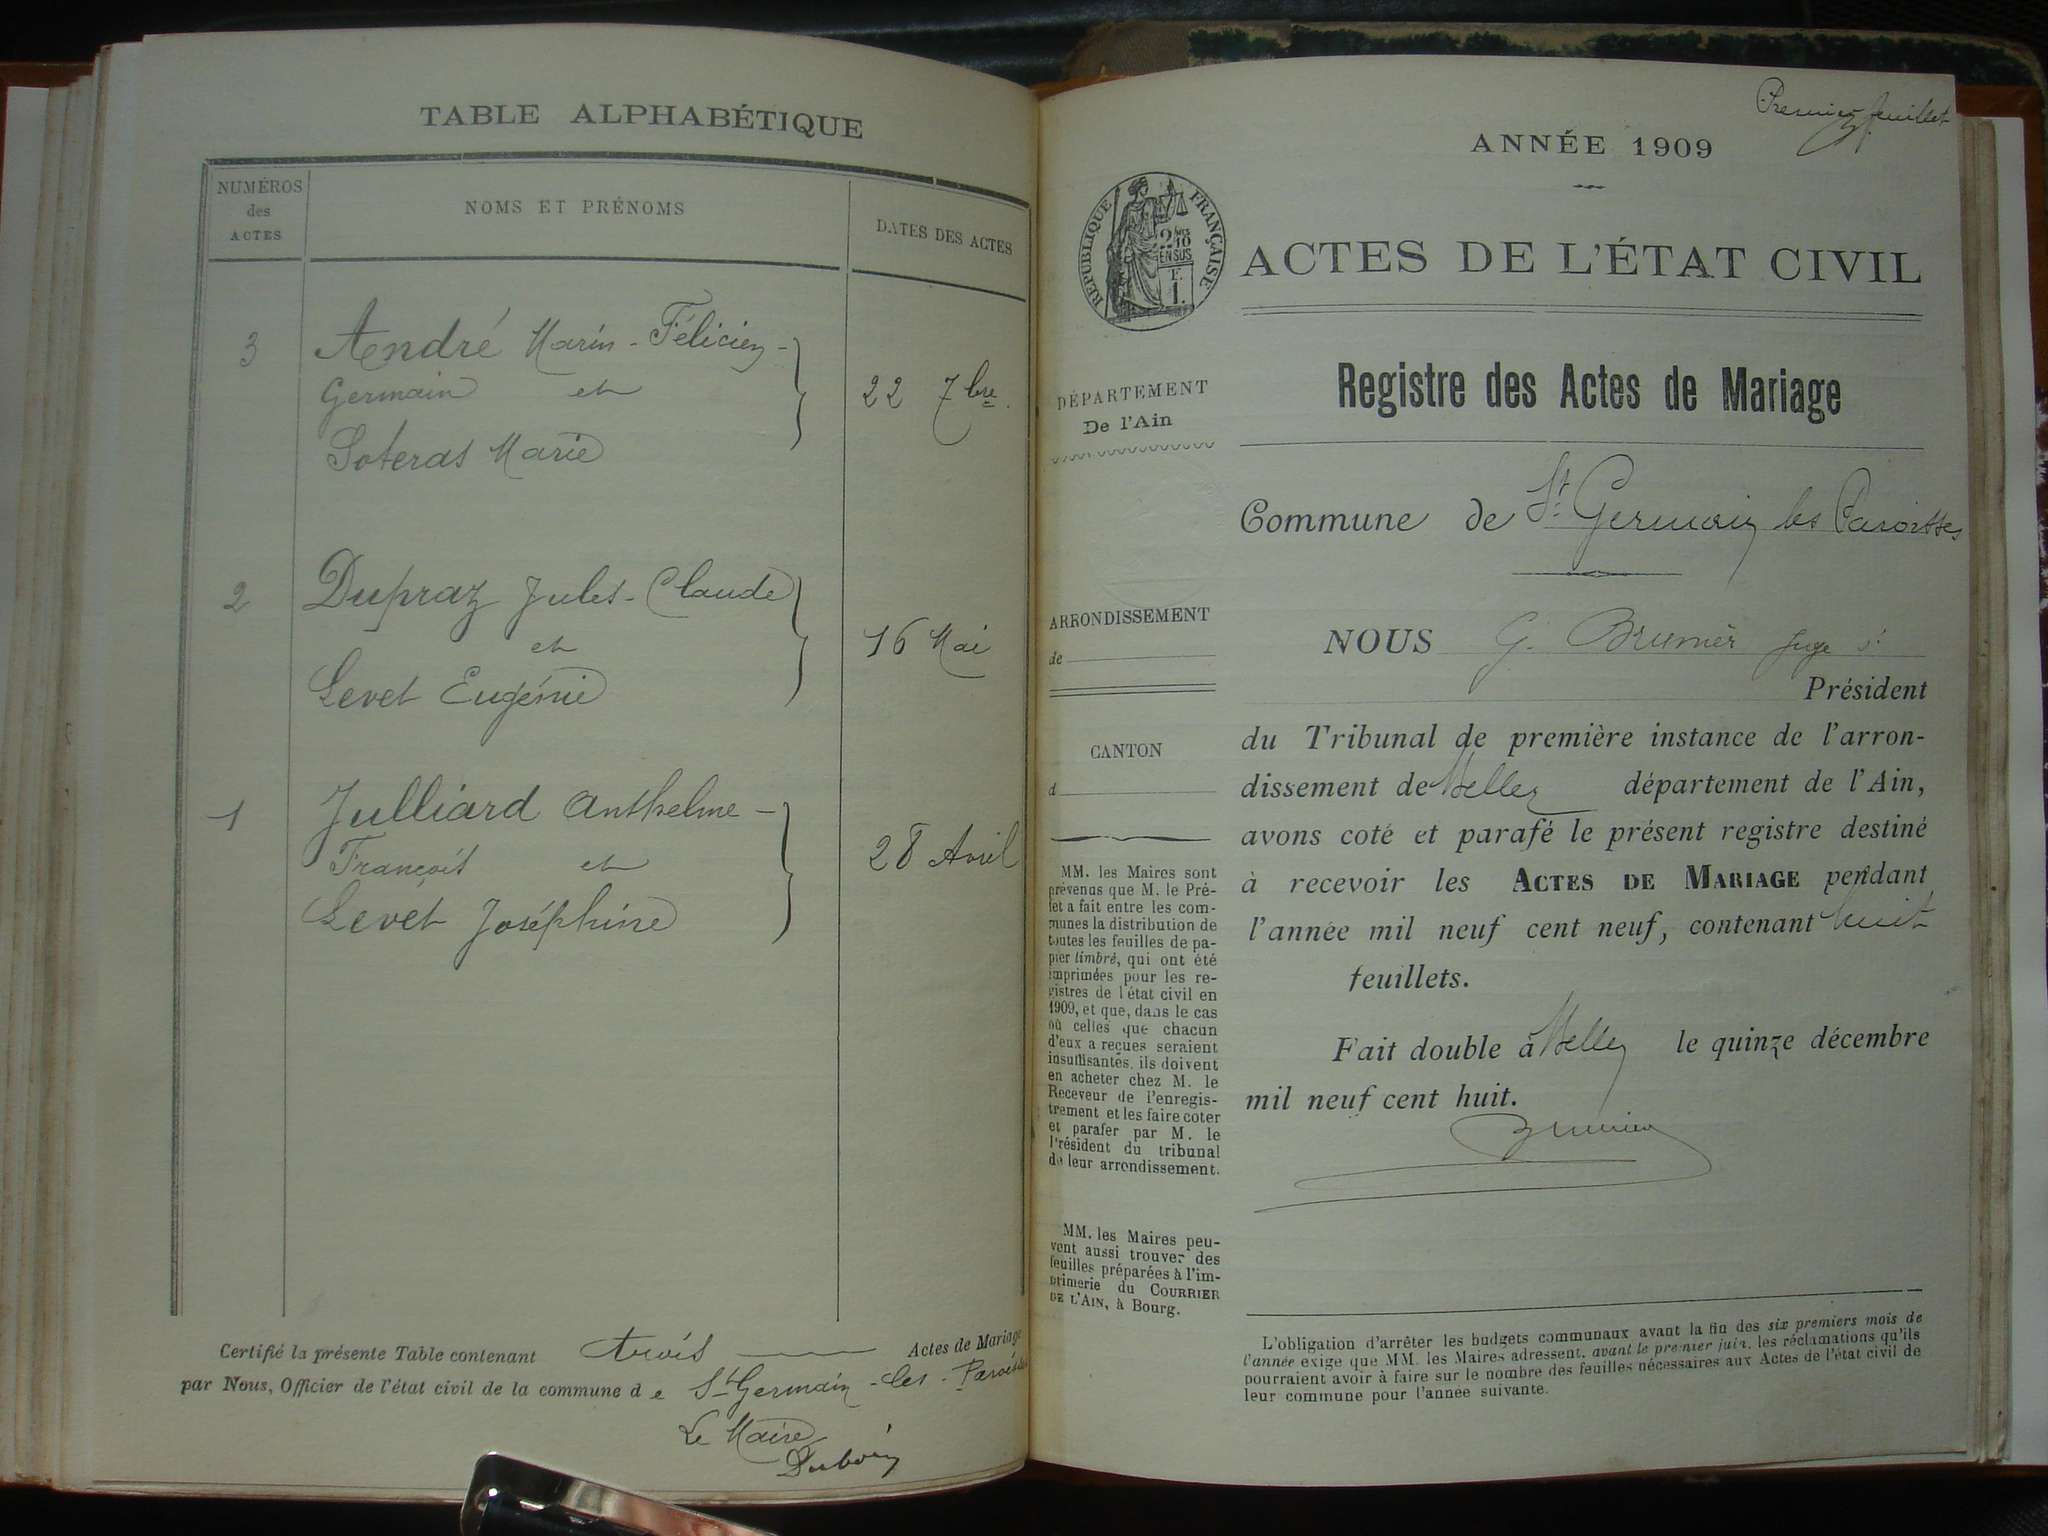 TABLE ALPHABÉTIQUE
NUMÉROS
des
ACTES
NOMS ET PRÉNOMS
DATES DES ACTES
3
André Marin-Félicien-
Germain et
Soteras Marie
22 7bre.
2
Dupraz Jules-Claude
et
Levet Eugénie
16 Mai
1
Julliard Anthelme-
François et
Levet Joséphine
28 Avril
Certifié la présente Table contenant trois Actes de Mariage
par Nous, Officier de l'état civil de la commune de St Germain-les-Paroisses
Le Maire
Premier feuillet
ANNÉE 1909
RÉPUBLIQUE FRANÇAISE
2/10
EN SUS
1 F.
ACTES DE L'ÉTAT CIVIL
Registre des Actes de Mariage
DÉPARTEMENT
De l'Ain
Commune de St Germain les Paroisses
ARRONDISSEMENT
de
CANTON
d
NOUS G. Brunier juge
Président
du Tribunal de première instance de l'arron-
dissement de Belley département de l'Ain,
avons coté et parafé le présent registre destiné
à recevoir les ACTES DE MARIAGE pendant
l'année mil neuf cent neuf, contenant huit
feuillets.
Fait double à Belley le quinze décembre
mil neuf cent huit.
Brunier
MM. les Maires sont
prévenus que M. le Pré-
fet a fait entre les com-
munes la distribution de
toutes les feuilles de pa-
pier timbré, qui ont été
imprimées pour les re-
gistres de l'état civil en
1909, et que, dans le cas
où celles que chacun
d'eux a reçues seraient
insuffisantes, ils doivent
en acheter chez M. le
Receveur de l'enregis-
trement et les faire coter
et parafer par M. le
Président du tribunal
de leur arrondissement.
MM. les Maires peu-
vent aussi trouver des
feuilles préparées à l'im-
primerie du COURRIER
DE L'AIN, à Bourg.
L'obligation d'arrêter les budgets communaux avant la fin des six premiers mois de
l'année exige que MM. les Maires adressent, avant le premier juin, les réclamations qu'ils
pourraient avoir à faire sur le nombre des feuilles nécessaires aux Actes de l'état civil de
leur commune pour l'année suivante.